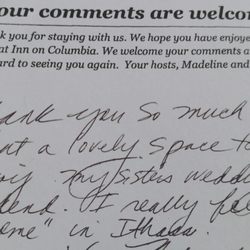 our comments are welcom
k you for staying with us. We hope you have enjoye
at Inn on Columbia. We welcome your comments a
ard to seeing you again. Your hosts, Madeline and
ank you so much
at a lovely space to
my sisters wedd
end. I really fe
ome" in Ithaca.